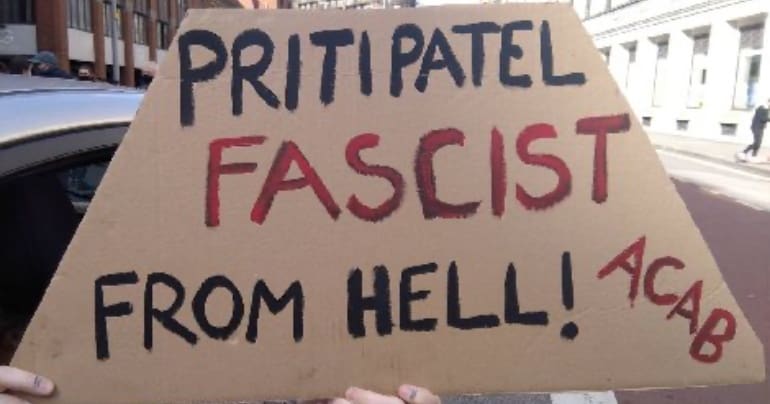 PRITI PATEL
FASCIST
FROM HELL!
ACAB